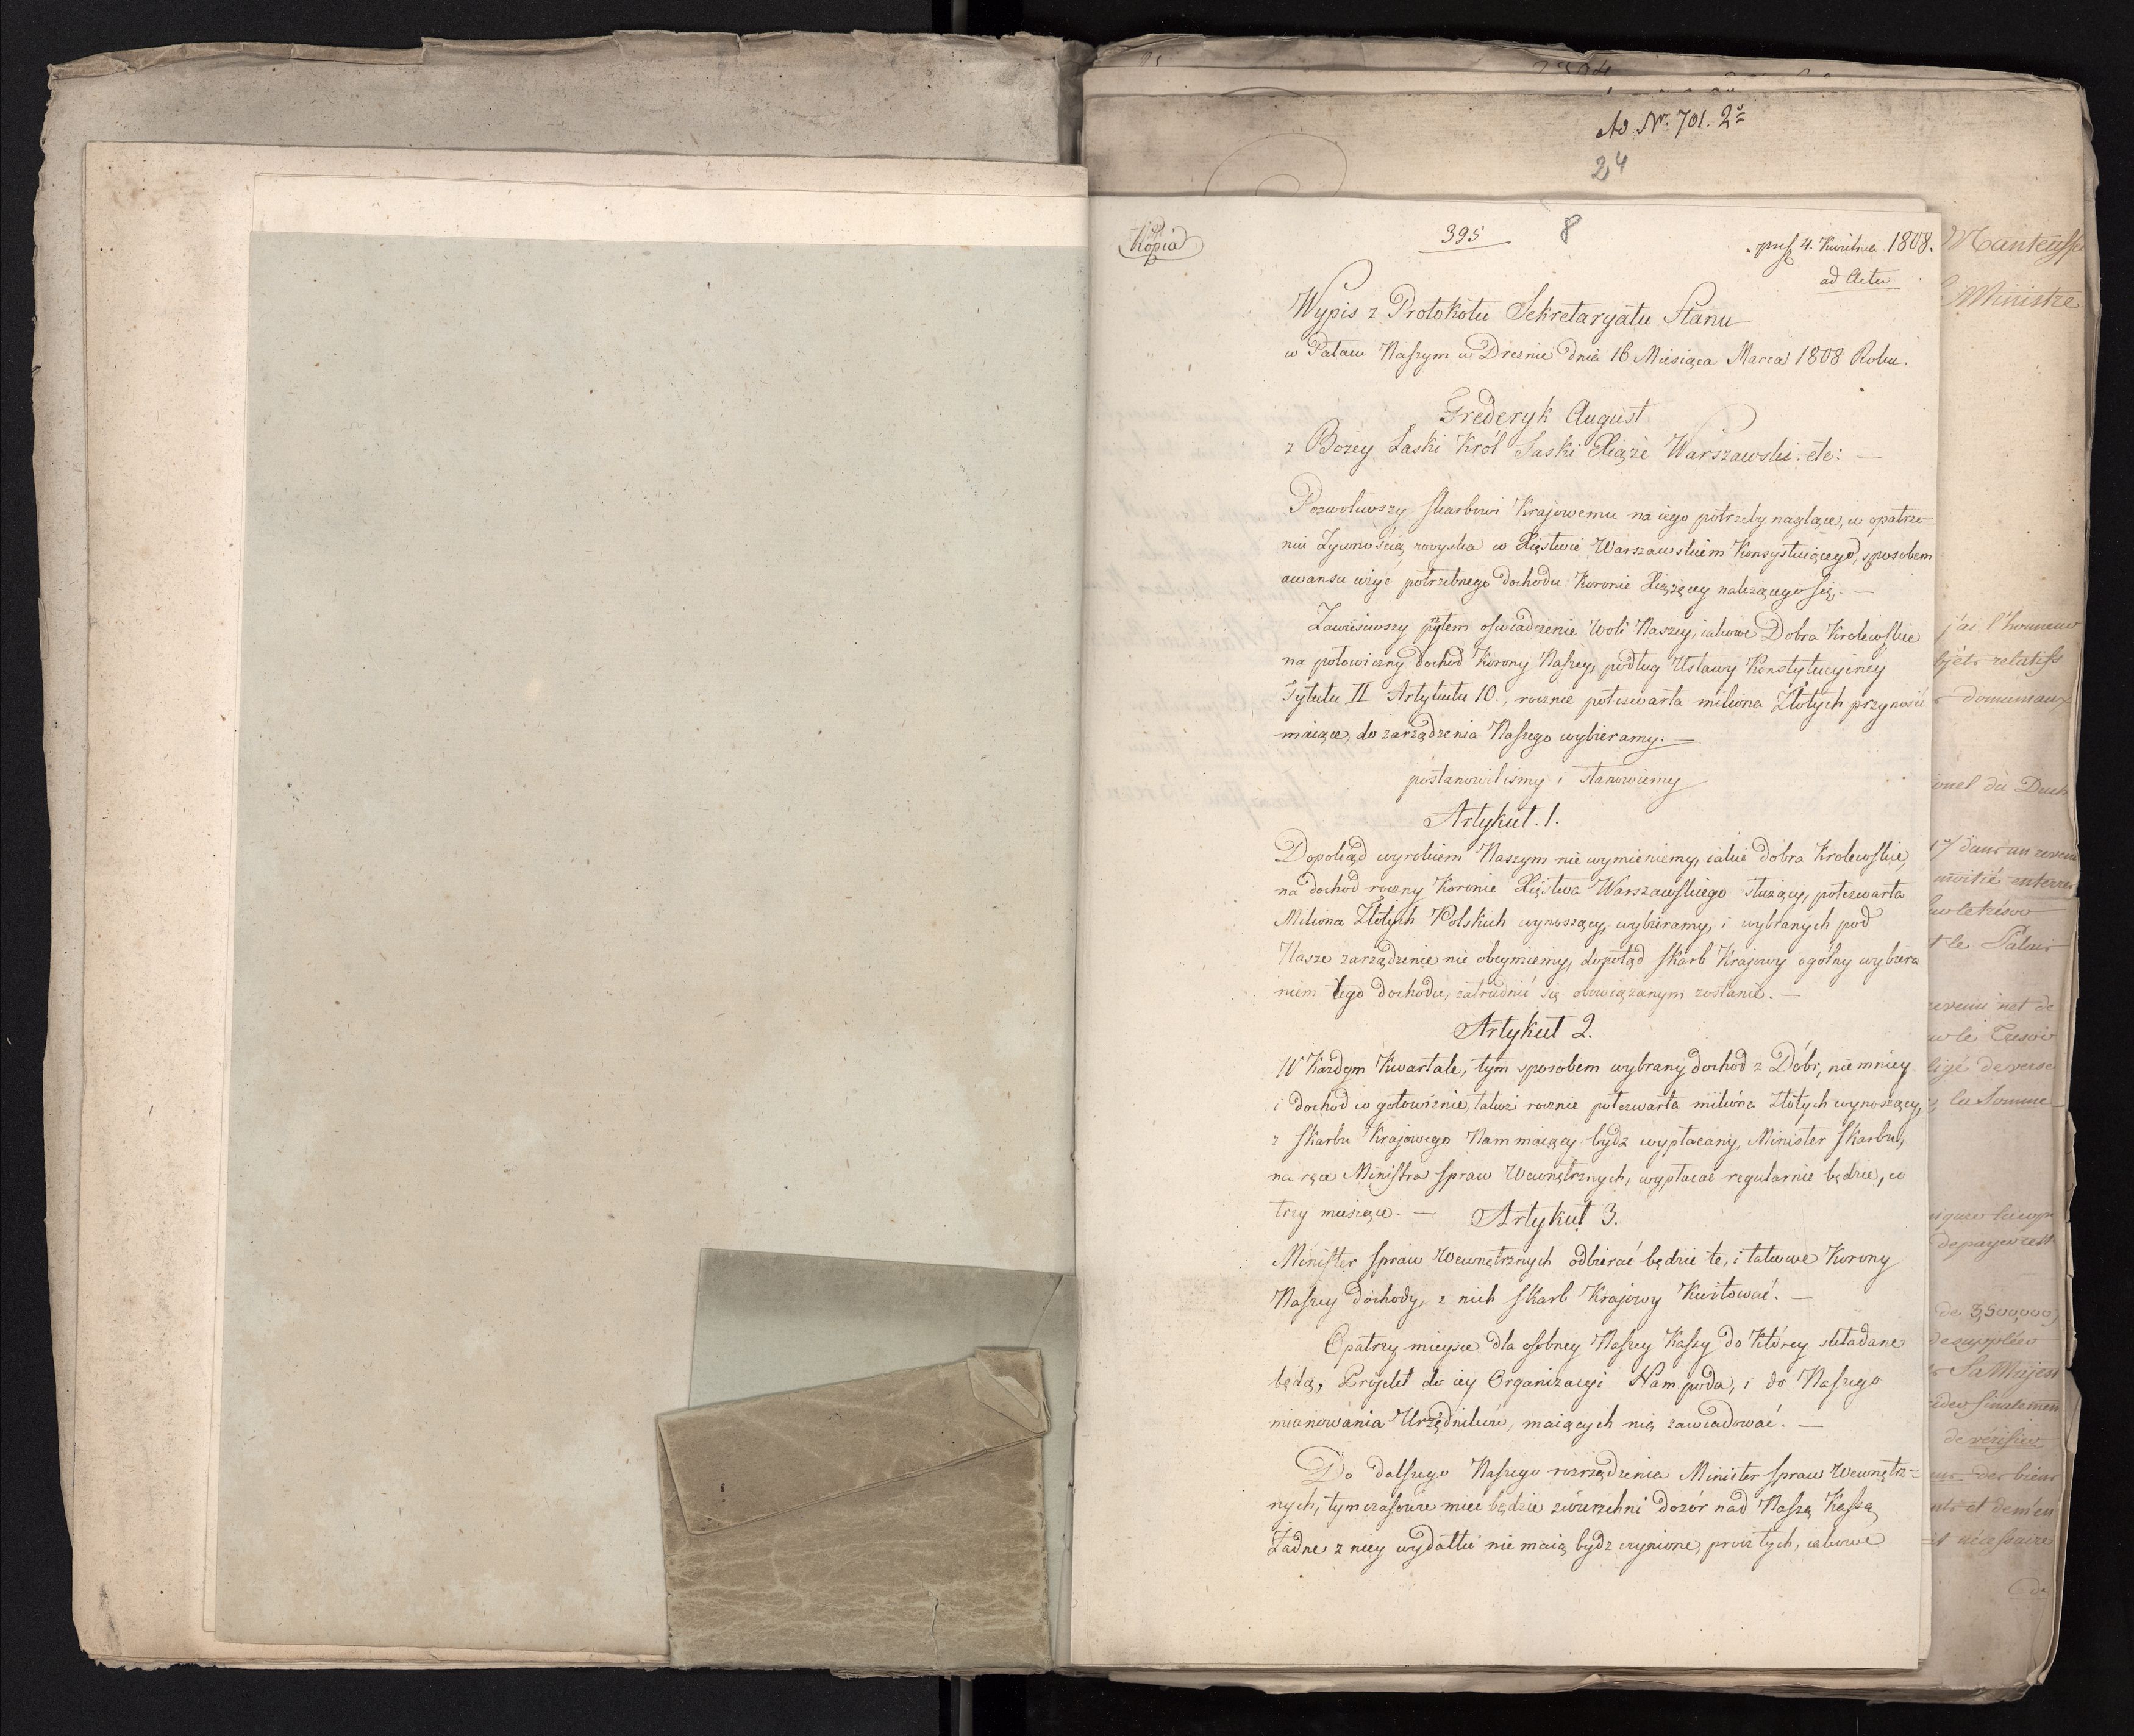 Ad Nr. 701. 2
24
Kopia
395
8
4. Kwietnia 1808.
ad Acta
Wypis z Protokołu Sekretaryatu Stanu
w Pałacu Naszym w Dreznie dnia 16 Miesiąca Marca 1808 Roku
Frederyk August
z Bożey Łaski Król Saski Xiąże Warszawski. etc: —
Pozwoliwszy skarbowi Krajowemu na iego potrzeby naglące, w opatrze-
niu Żywnością woyska w Xięstwie Warszawskiem Konsystuiącego, sposobem
awansu użyć potrzebnego dochodu Koronie Xiążęcey należącego się. —
Zawiesiwszy przytem oswiadczenie Woli Naszey, iakowe Dobra Krolewskie
na połowiczny dochod Korony Naszey, podług Ustawy Konstytucyiney
Tytułu II Artykułu 10., rocznie połczwarta miliona Złotych przynosić
maiące, do zarządzenia Naszego wybieramy. —
postanowilismy i stanowiemy
Artykuł. 1.
Dopokąd wyrokiem Naszym nie wymieniemy, iakie dobra Krolewskie,
na dochod roczny Koronie Xięstwa Warszawskiego służący, połczwarta
Miliona Złotych Polskich wynoszący, wybieramy, i wybranych pod
Nasze zarządzenie nie obeymiemy, dopokąd skarb Krajowy ogólny wybiera
niem tego dochodu, zatrudnić się obowiązanym zostanie. —
Artykuł 2.
W Każdym Kwartale, tym sposobem wybrany dochod z Dóbr, nie mniey
i dochod w gotowiznie, także rocznie połczwarta miliona Złotych wynoszący,
z skarbu Krajowego Nam maiący bydz wypłacany, Minister skarbu,
na ręce Ministra spraw Wewnętrznych, wypłacać regularnie będzie, co
trzy miesiące. — Artykuł 3.
Minister spraw Wewnętrznych odbierać będzie te, i takowe Korony
Naszey dochody, z nich skarb Krajowy Kwitować. —
Opatrzy mieysce dla osobney Naszey Kassy do Którey składane
będą, Projekt do iey Organizacyi Nam poda, i do Naszego
mianowania Urzędników, maiących nią zawiadować. —
Do dalszego Naszego rozrządzenia Minister spraw Wewnętrz-
nych, tymczasowie mieć będzie zwierzchni dozór nad Naszą Kassą
Żadne z niey wydatki nie maią bydz czynione, procz tych, iakowe
Ministre
j'ai l'honneur
relatifs
domaniaux
du Duch
moitié
le Palais
revenu net de
la Somme
de 3,500,000,
Sa Majest
finalement
de vérifier
des biens
nécessaire
de